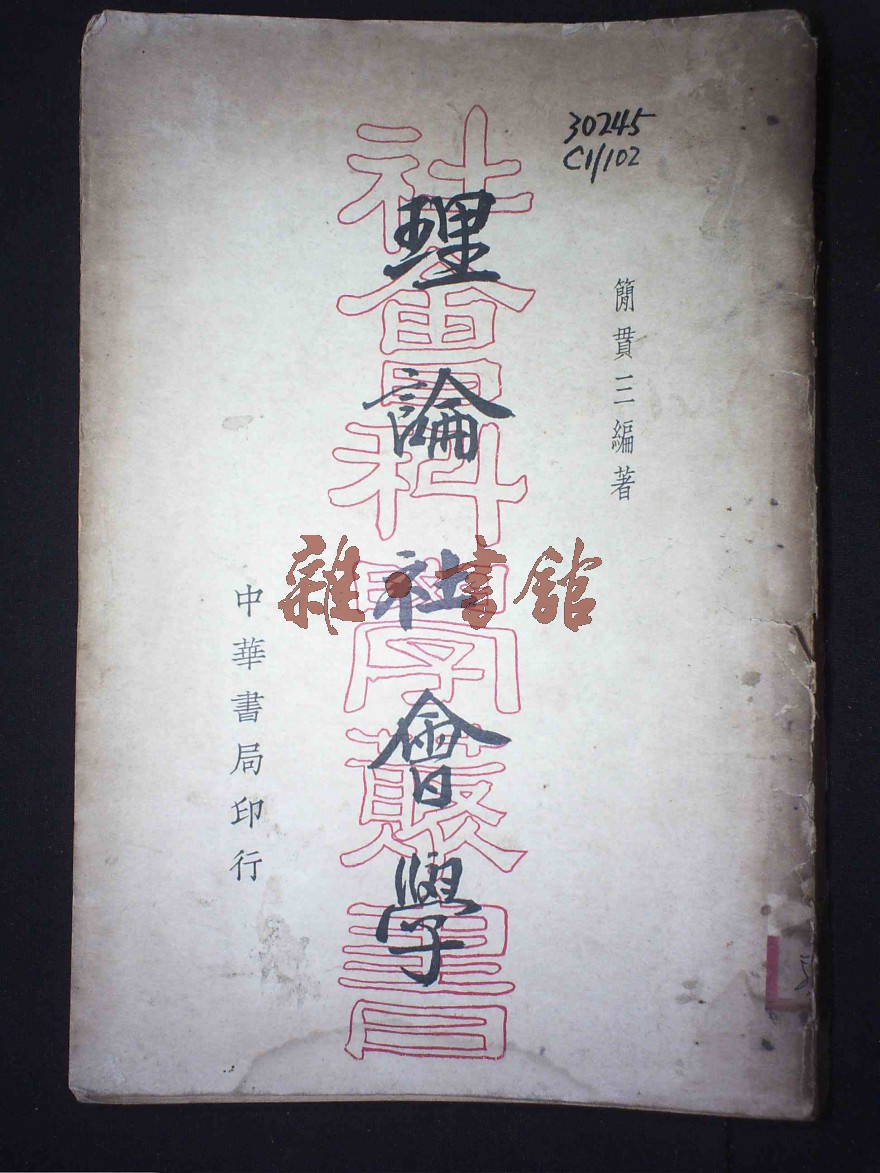 30245
C1/102
簡貫三編著
理論社會學
社會科學叢書
中華書局印行
雜·書館